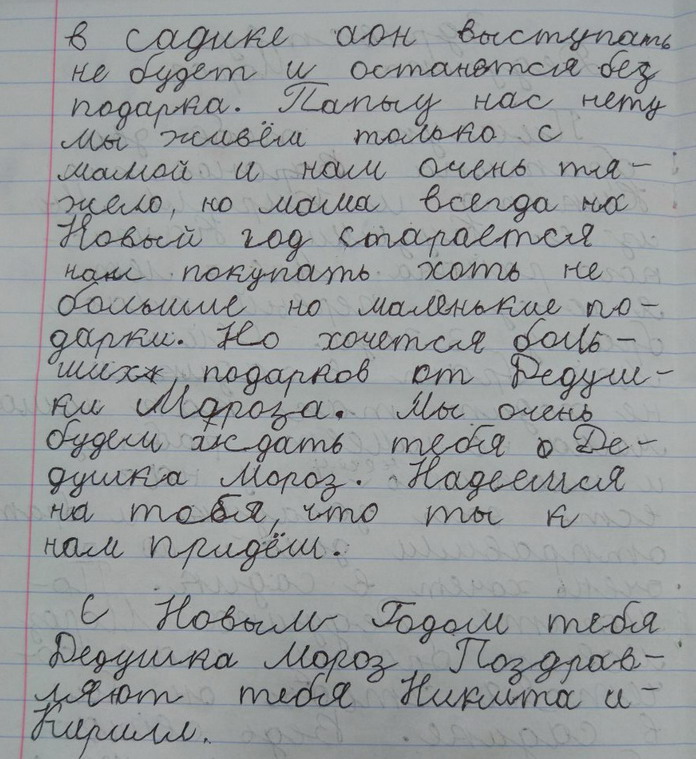 в садике аон выступать
не будет и останется без
подарка. Папыу нас нету
мы живём только с
мамой и нам очень тя-
жело, но мама всегда на
Новый год старается
нам покупать хоть не
большие но маленькие по-
дарки. Но хочется боль-
ших, подарков от Дедуш-
ки Мороза. Мы очень
будем ждать тебя о Де-
душка Мороз. Надеемся
на тебя, что ты к
нам придёш.
С Новым Годом тебя
Дедушка Мороз Поздрав-
ляют тебя Никита и-
Кирилл.